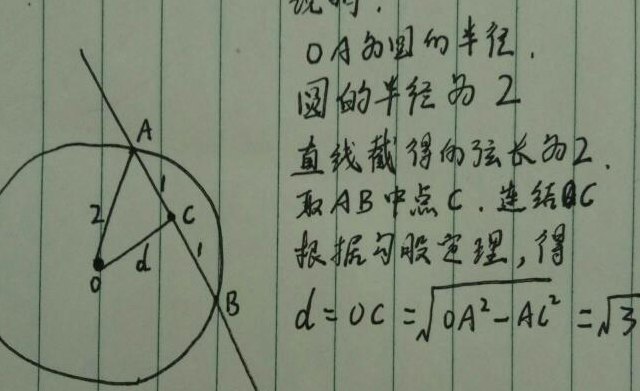 说明:
OA为圆的半径.
圆的半径为2
直线截得的弦长为2.
取AB中点C.连结OC
根据勾股定理,得
d=OC=√OA²-AC²=√3
A
1
2
C
d
1
O
B